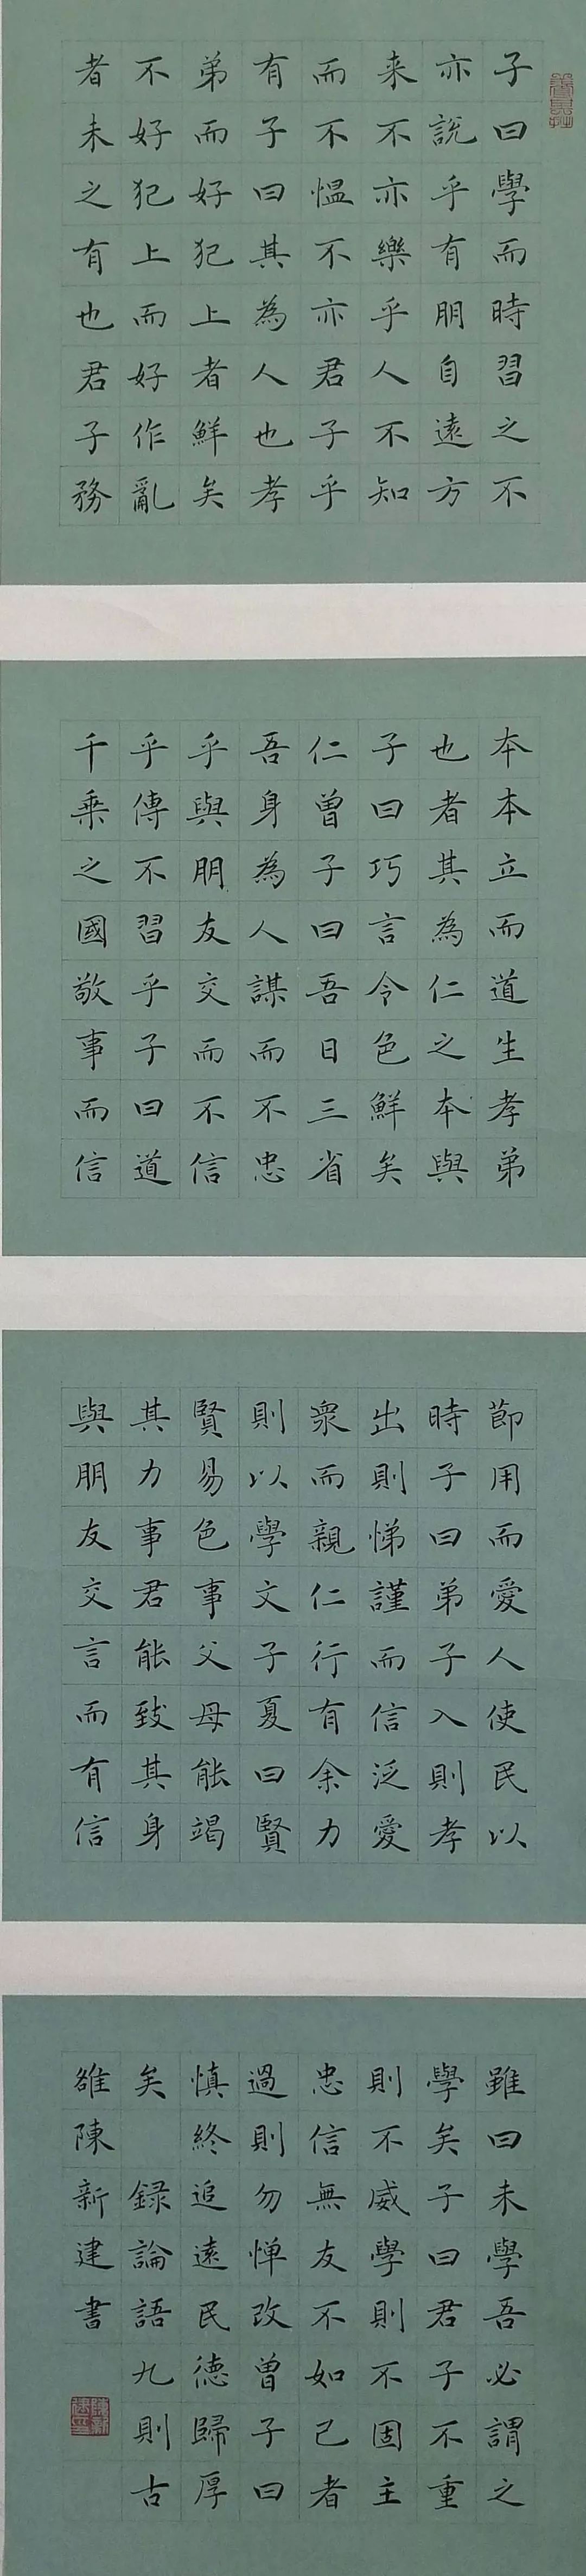 子曰學而時習之不
亦說乎有朋自遠方
来不亦樂乎人不知
而不愠不亦君子乎
有子曰其為人也孝
弟而好犯上者鮮矣
不好犯上而好作亂
者未之有也君子務
本本立而道生孝弟
也者其為仁之本與
子曰巧言令色鮮矣
仁曾子曰吾日三省
吾身為人謀而不忠
乎與朋友交而不信
乎傳不習乎子曰道
千乘之國敬事而信
節用而愛人使民以
時子曰弟子入則孝
出則悌謹而信泛愛
衆而親仁行有余力
則以學文子夏曰賢
賢易色事父母能竭
其力事君能致其身
與朋友交言而有信
雖曰未學吾必謂之
學矣子曰君子不重
則不威學則不固主
忠信無友不如己者
過則勿惮改曾子曰
慎終追遠民德歸厚
矣 録論語九則古
雒陳新建書